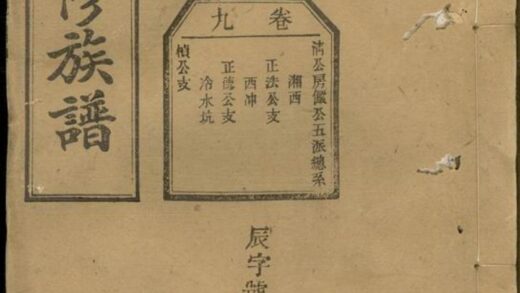 卷九
清公房儼公五派總系
湘西
正法公支
西冲
正德公支
冷水坑
楨公支
辰字號
修族譜